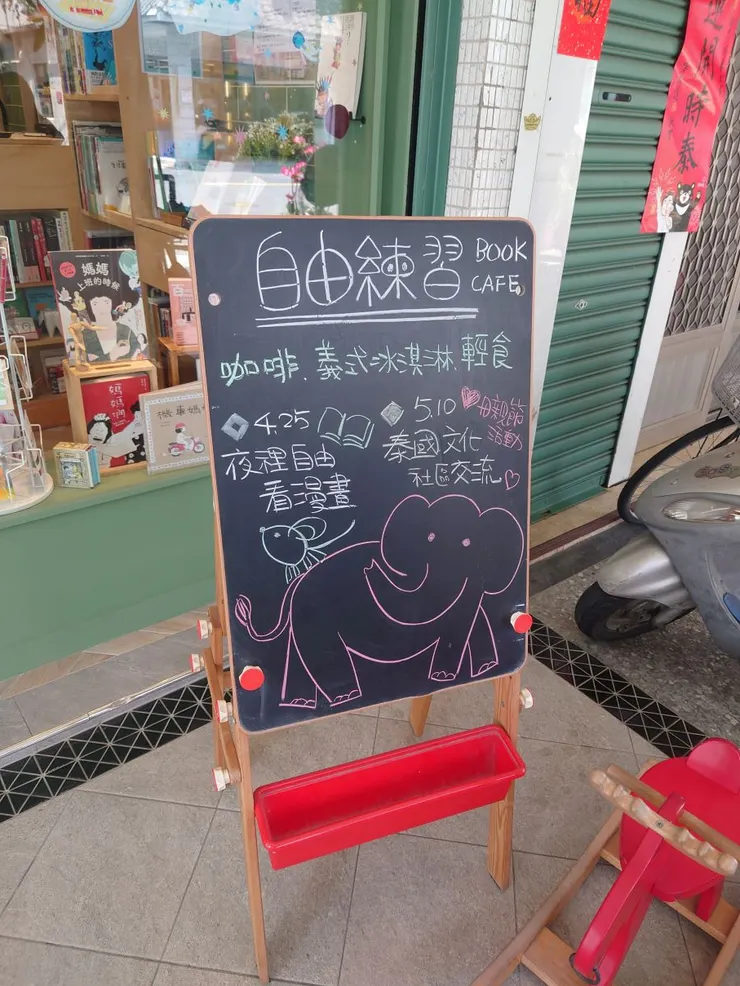 自由練習 BOOK CAFE
咖啡、義式冰淇淋、輕食
4.25
夜裡自由
看漫畫
5.10 母親節活動
泰國文化
社區交流
媽媽
上班的時候
媽媽們
機車媽媽
開時泰